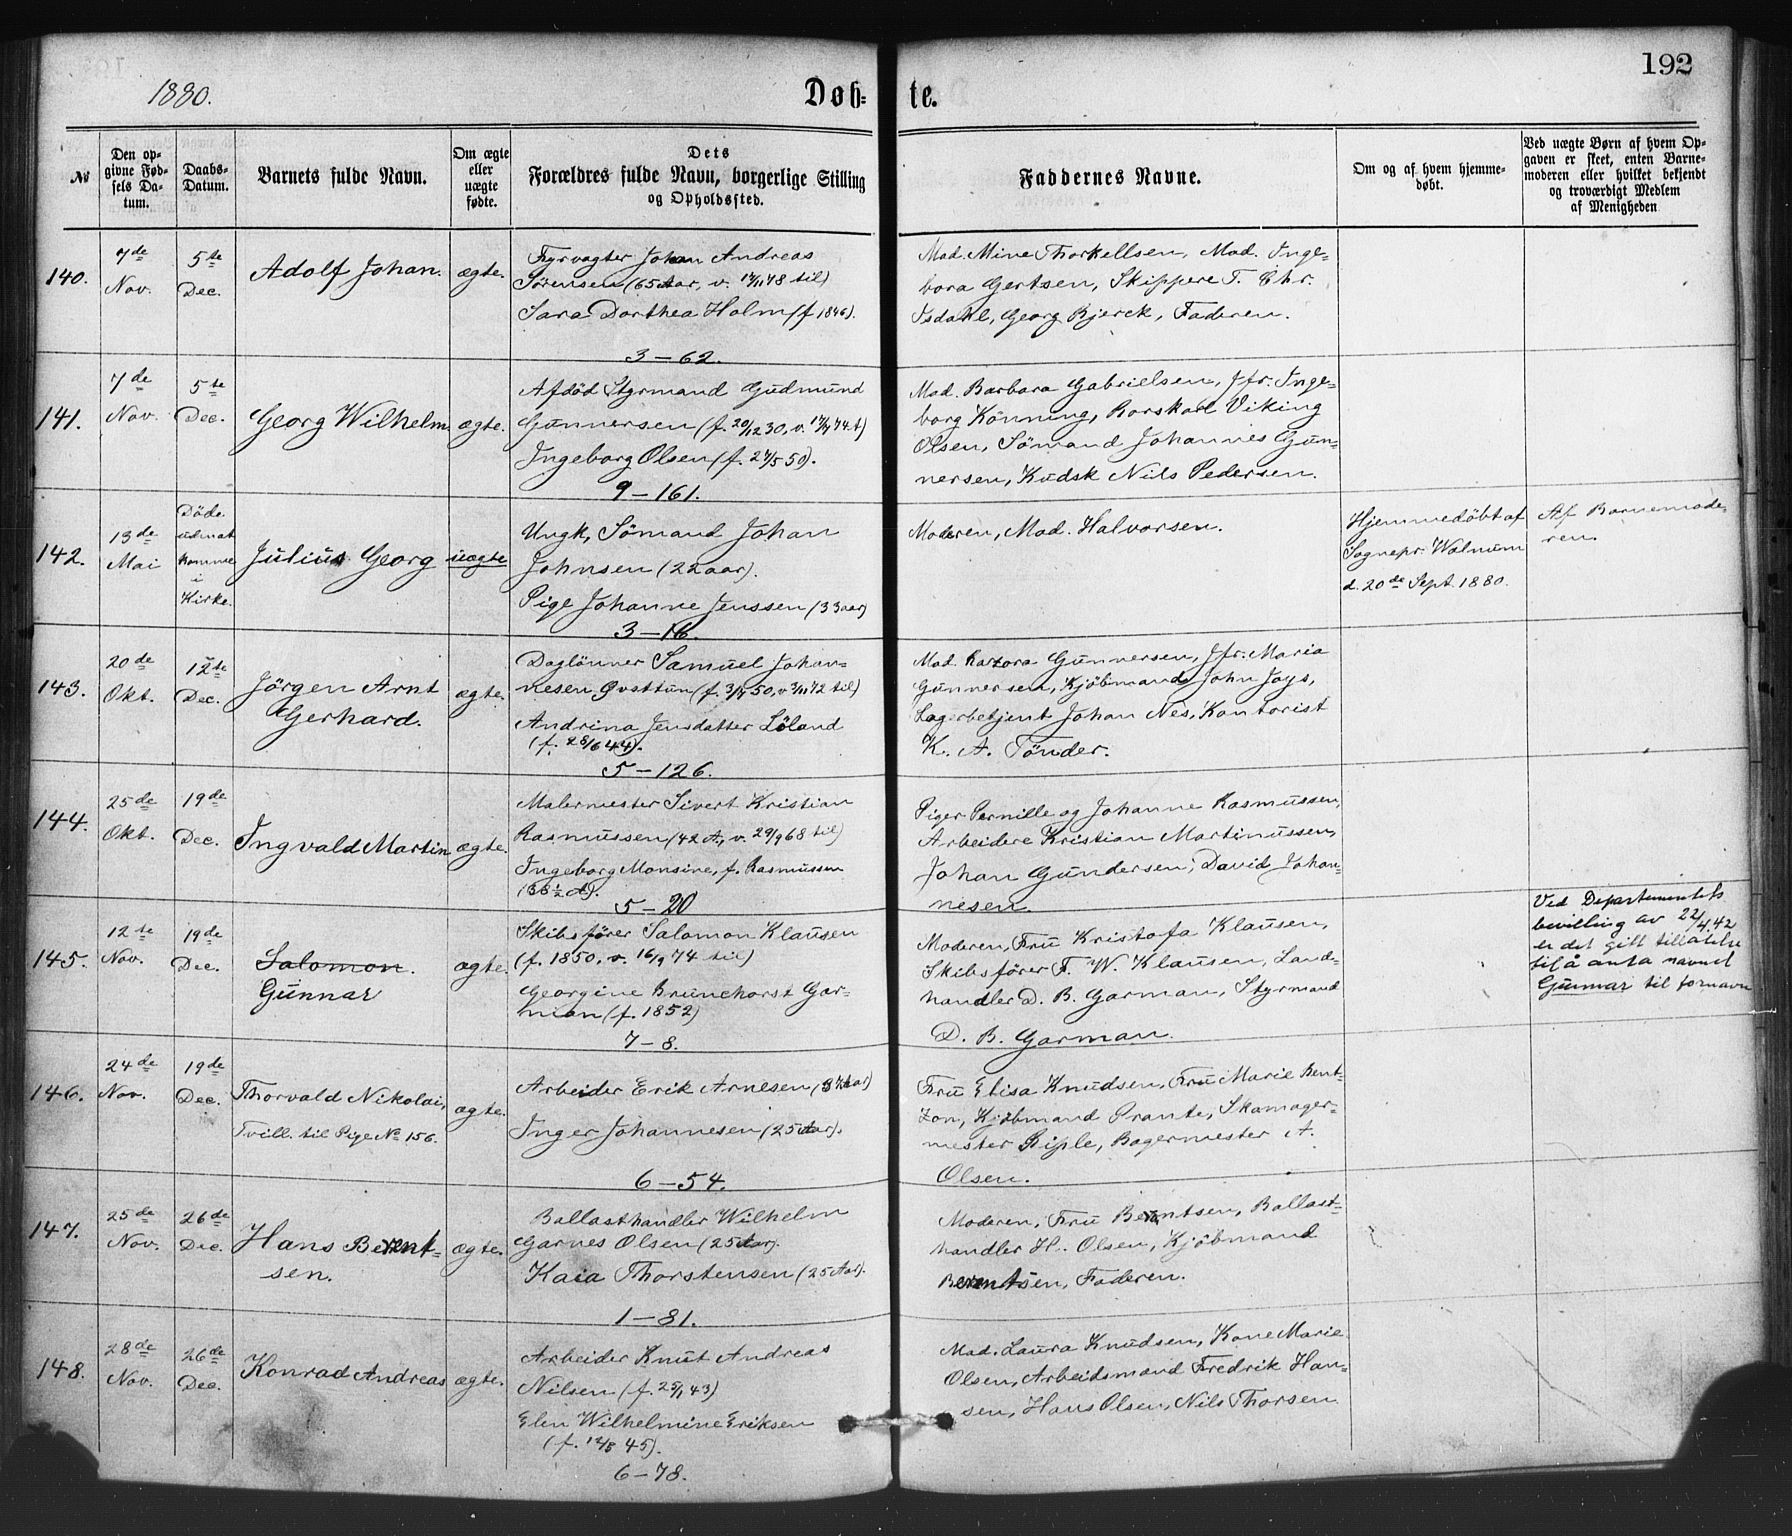 192
1880.
Døb-
te.
№
Den op-
givne Fød-
sels Da-
tum.
Daabs-
Datum.
Barnets fulde Navn.
Om ægte
eller
uægte
fødte.
Dets
Forældres fulde Navn, borgerlige Stilling
og Opholdssted.
Faddernes Navne.
Om og af hvem hjemme-
døbt.
Ved uægte Børn af hvem Op-
gaven er skeet, enten Barne-
moderen eller hvilket bekjendt
og troværdigt Medlem
af Menigheden
140.
7de
Nov.
5te
Dec.
Adolf Johan.
ægte.
Fyrvagter Johan Andreas
Sørensen (65 Aar, v. 17/11 78 til)
Sara Dorthea Holm (f 1846).
3–62.
Mad. Mine Thorkellsen, Mad. Inge-
bora Gertsen, Skippere T. Chr.
Isdahl, Georg Bjerck, Faderen.
141.
7de
Nov.
5te
Dec.
Georg Wilhelm
ægte.
Afdød Styrmand Gudmund
Gunnersen (f. 20/12 30, v. 74 t)
Ingeborg Olsen (f. 27/5 50).
9–161.
Mad. Barbara Gabrielsen, Jfr. Inge-
borg Könning, Barskarl Viking
Olsen, Sømand Johannes Gun-
nersen, Kudsk Nils Pedersen.
142.
13de
Mai
Døde
udmat
komme
i
Kirke.
Julius Georg
uægte
Ungk, Sømand Johan
Johnsen (22 aar).
Pige Johanne Jenssen (33 aar)
3–16.
Moderen, Mad. Halvorsen.
Hjemmedøbt af
Sognepr. Walnum
d. 20de Sept. 1880.
Af Barnemode-
ren.
143.
20de
Okt.
12te
Dec.
Jörgen Arnt
Gerhard.
ægte.
Daglönner Samuel Johan-
nesen Øvsttun (f. 50, v 72 til)
Andrina Jensdatter Löland
(f. 28/6 44).
5–126.
Mad. Gunnersen, Jfr. Maria
Gunnersen, Kjöbmand John Joys,
Lagerbetjent Johan Nes, Kontorist
K. A. Tönder.
144.
25de
Okt.
19de
Dec.
Ingvald Martin
ægte.
Malermester Sivert Kristian
Rasmussen (42 A, v. 29/9 68 til)
Ingeborg Monsine, f. Rasmussen
(33 ½ A).
5–20
Piger Pernille og Johanne Rasmussen,
Arbeidere Kristian Martinussen,
Johan Gundersen, David Johan-
nesen.
145.
12te
Nov.
19de
Dec.
Salomon.
Gunnar
ægte.
Skibsfører Salomon Klausen
(f. 1850, v. 16/9 74 til)
Georgine Brunchorst Gar-
man (f. 1852)
7–8.
Moderen, Fru Kristofa Klausen,
Skibsfører F. W. Klausen, Land-
handler D. B. Garman, Styrmand
D. B. Garman.
Ved Departementets
bevilling av 22/4.42
er det gitt tillatelse
til å anta navnet
Gunnar til fornavn
146.
24de
Nov.
19de
Dec.
Thorvald Nikolai,
Tvill. til Pige № 156.
ægte.
Arbeider Erik Arnesen (37 Aar)
Inger Johannesen (25 Aar).
6–54.
Fru Elisa Knudsen, Fru Marie Bent-
zon, Kjöbmand Prante, Skomager-
mester Riple, Bagermester A.
Olsen.
147.
25de
Nov.
26de
Dec.
Hans Berent-
sen.
ægte.
Ballasthandler Wilhelm
Garnes Olsen (25 Aar).
Kaia Thorstensen (25 Aar).
1–81.
Moderen, Fru Berentsen, Ballast-
handler H. Olsen, Kjöbmand
Berentsen, Faderen.
148.
28de
Nov.
26de
Dec.
Konrad Andreas
ægte.
Arbeider Knut Andreas
Nilsen (f. 25/1 43)
Elen Wilhelmine Eriksen
(f. 12/8 45).
6–78.
Mad. Laura Knudsen, Kone Marie
Olsen, Arbeidsmand Fredrik Han-
sen, Hans Olsen, Nils Thorsen